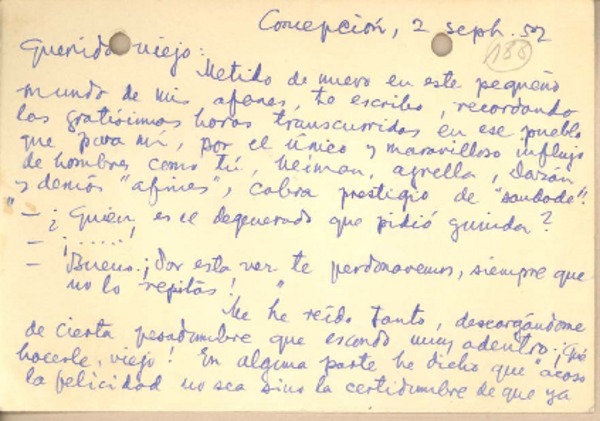 Concepción, 2 sept. 52
188
Querido viejo:
Metido de nuevo en este pequeño
mundo de mis afanes, te escribo, recordando
las gratísimas horas transcurridas en ese pueblo
que para mí, por el único y maravilloso influjo
de hombres como tú, Neiman, Agrella, Durán
y demás "afines", cobra prestigio de "saudade".
" – ¿Quién es ce degenerado que pidió guinda?
– ¡.....!
– Bueno. ¡Por esta vez te perdonaremos, siempre que
no lo repitas! "
Me he reído tanto, descargándome
de cierta pesadumbre que escondo muy adentro. ¡Qué
hacerle, viejo! En alguna parte he dicho que "acaso
la felicidad no sea sino la certidumbre de que ya